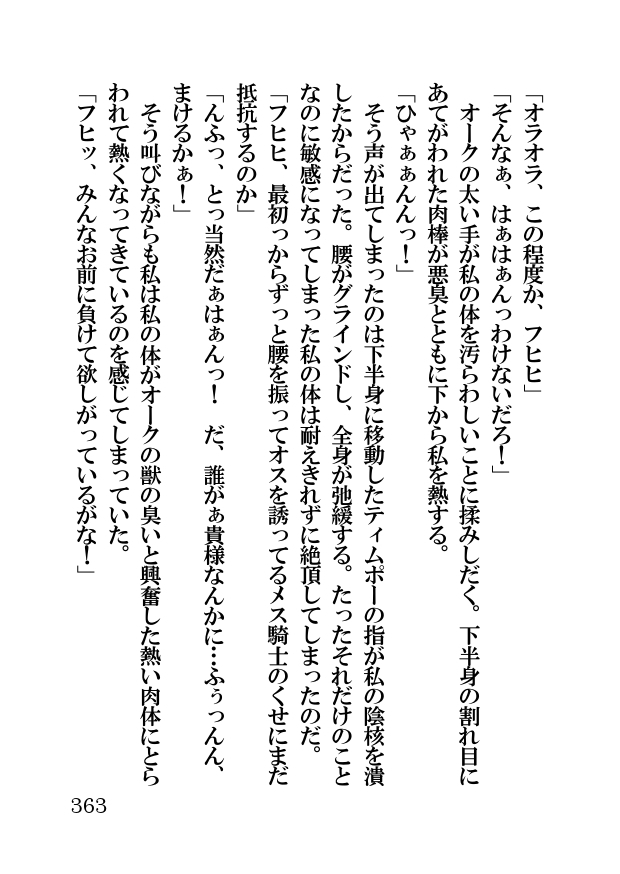 「オラオラ、この程度か、フヒヒ」
「そんなぁ、はぁはぁんっわけないだろ！」
　オークの太い手が私の体を汚らわしいことに揉みしだく。下半身の割れ目に
あてがわれた肉棒が悪臭とともに下から私を熱する。
「ひゃぁぁんんっ！」
　そう声が出てしまったのは下半身に移動したティムポーの指が私の陰核を潰
したからだった。腰がグラインドし、全身が弛緩する。たったそれだけのこと
なのに敏感になってしまった私の体は耐えきれずに絶頂してしまったのだ。
「フヒヒ、最初っからずっと腰を振ってオスを誘ってるメス騎士のくせにまだ
抵抗するのか」
「んふっ、とっ当然だぁはぁんっ！　だ、誰がぁ貴様なんかに…ふぅっんん、
まけるかぁ！」
　そう叫びながらも私は私の体がオークの獣の臭いと興奮した熱い肉体にとら
われて熱くなってきているのを感じてしまっていた。
「フヒッ、みんなお前に負けて欲しがっているがな！」
363